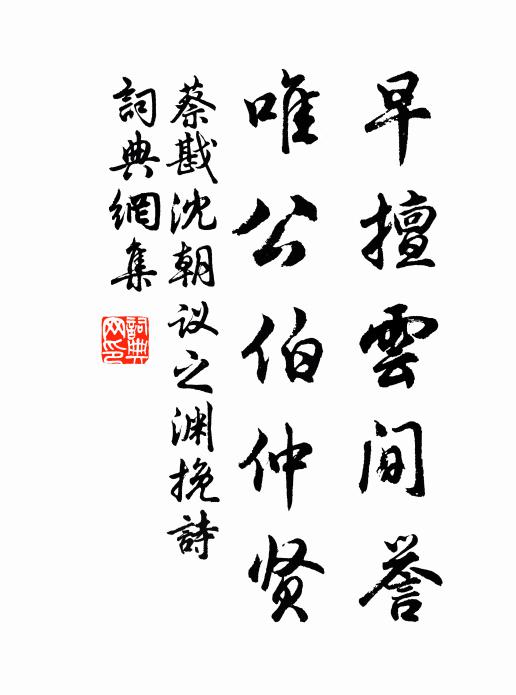 早擅雲間誉
唯公伯仲贤
蔡戡沈朝议之渊挽詩
詞典網集
詞典网印